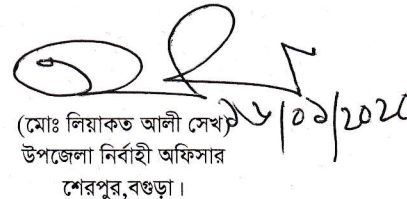 ১৬/০১/2020
(মোঃ লিয়াকত আলী সেখ)
উপজেলা নির্বাহী অফিসার
শেরপুর,বগুড়া।